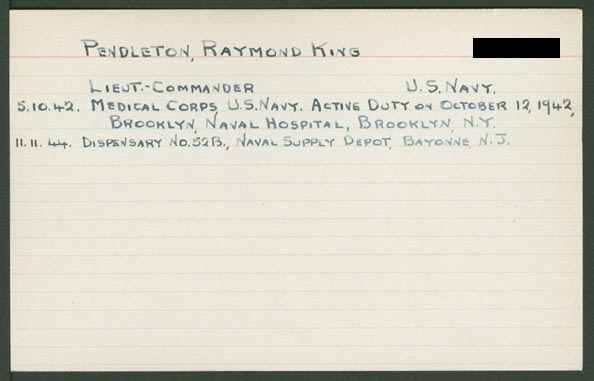 PENDLETON, RAYMOND KING
LIEUT.-COMMANDER U.S. NAVY.
5.10.42. MEDICAL CORPS, U.S. NAVY. ACTIVE DUTY ON OCTOBER 12, 1942,
BROOKLYN, NAVAL HOSPITAL, BROOKLYN, N.Y.
11.11.44. DISPENSARY NO. 52B., NAVAL SUPPLY DEPOT, BAYONNE, N.J.